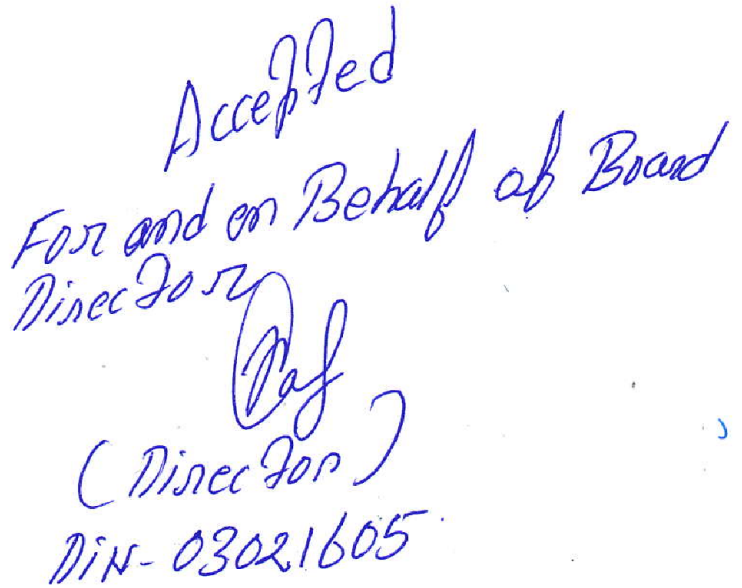 Accepted
For and on Behalf of Board
Director
(Director)
DIN- 03021605